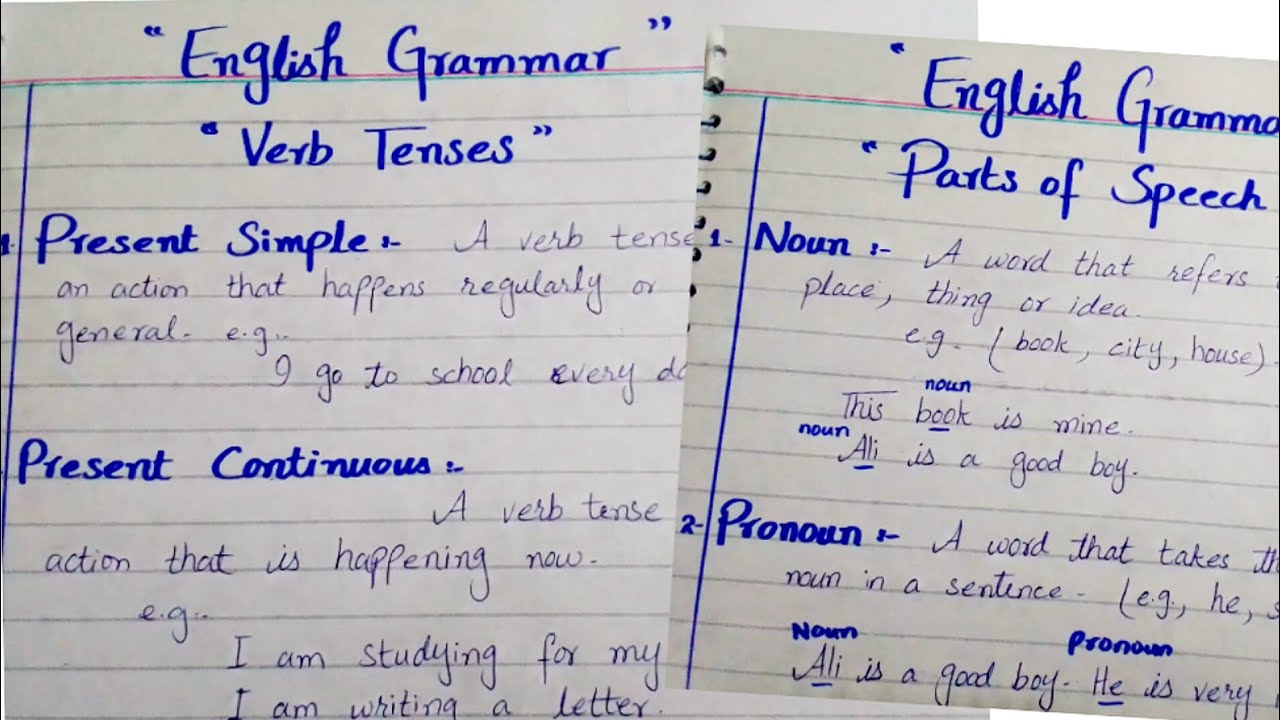 " English Grammar "
" Verb Tenses "
1- Present Simple :- A verb tense
an action that happens regularly or
general. e.g..
I go to school every
Present Continuous :-
A verb tense
action that is happening now.
e.g..
I am studying for my
I am writing a letter.
" English Gramma
" Parts of Speech
1- Noun :- A word that refers
place, thing or idea.
e.g. (book, city, house).
noun
This book is mine.
noun
Ali is a good boy.
2- Pronoun :- A word that takes
noun in a sentence. (e.g., he,
Noun Pronoun
Ali is a good boy. He is very